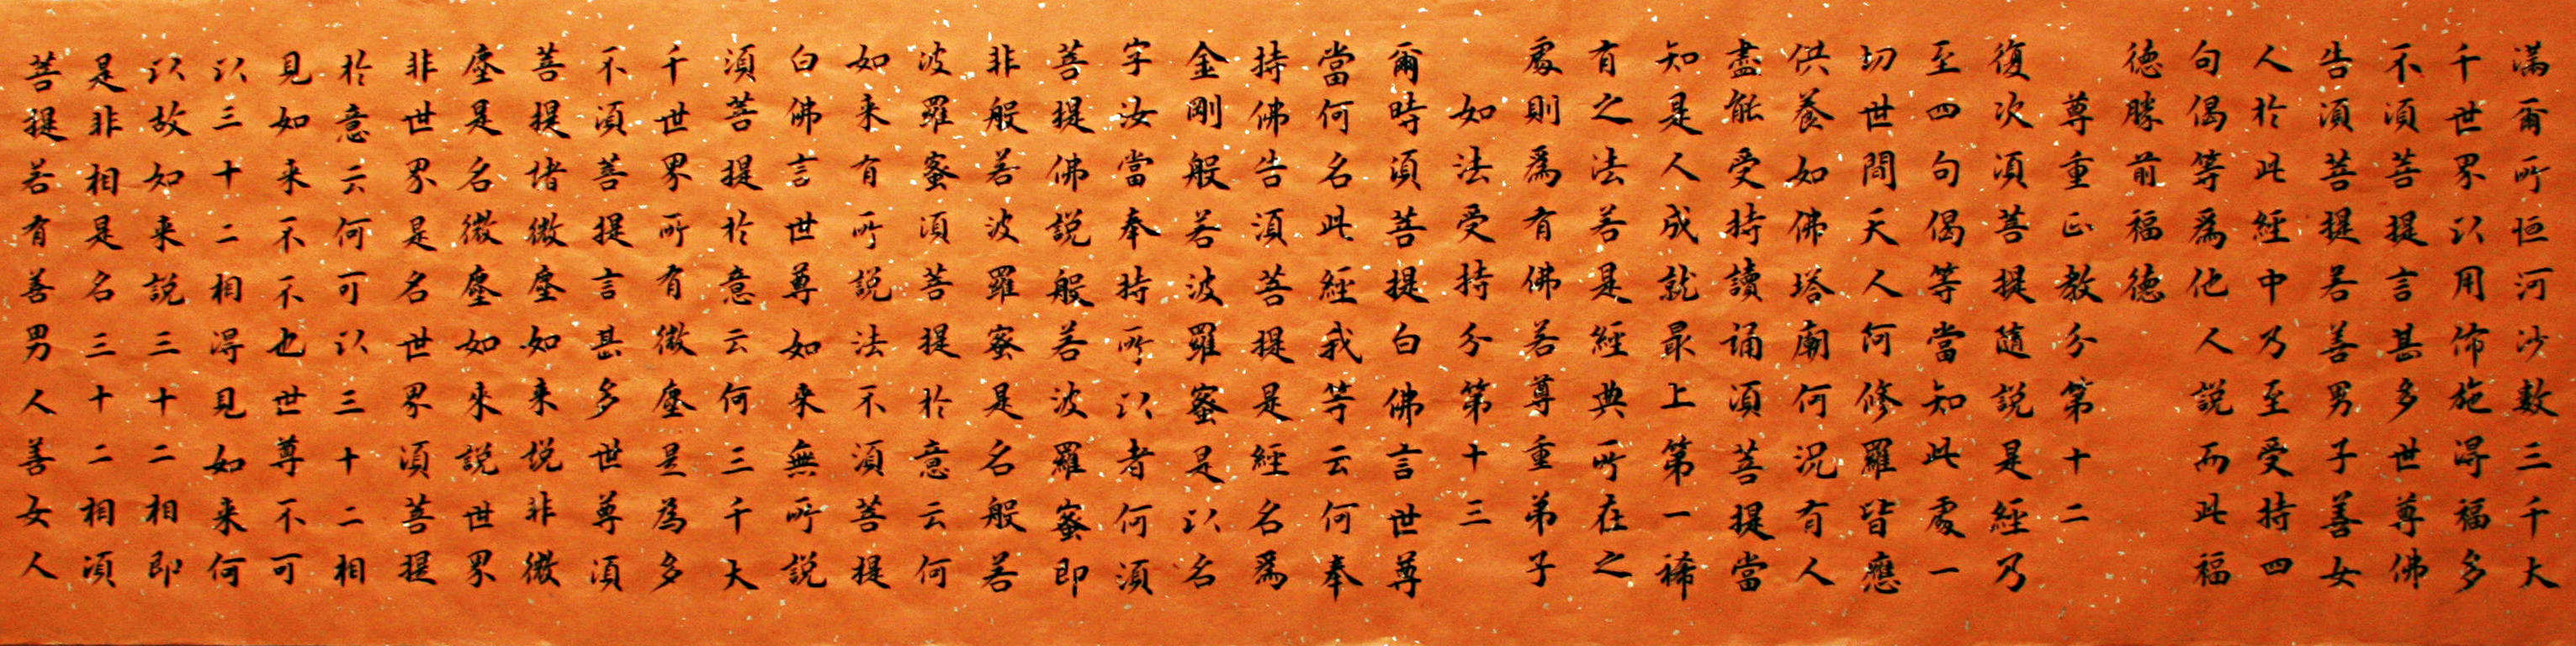 滿爾所恒河沙數三千大
千世界以用佈施得福多
不須菩提言甚多世尊佛
告須菩提若善男子善女
人於此經中乃至受持四
句偈等爲他人說而此福
德勝前福德
尊重正教分第十二
復次須菩提隨說是經乃
至四句偈等當知此處一
切世間天人何修羅皆應
供養如佛塔廟何況有人
盡能受持讀誦須菩提當
知是人成就最上第一稀
有之法若是經典所在之
處則爲有佛若尊重弟子
如法受持分第十三
爾時須菩提白佛言世尊
當何名此經我等云何奉
持佛告須菩提是經名爲
金剛般若波羅蜜是以名
字汝當奉持所以者何須
菩提佛說般若波羅蜜即
非般若波羅蜜是名般若
波羅蜜須菩提於意云何
如来有所說法不須菩提
白佛言世尊如来無所說
須菩提於意云何三千大
千世界所有微塵是為多
不須菩提言甚多世尊須
菩提堵微塵如来説非微
塵是名微塵如來說世界
非世界是名世界須菩提
於意云何可以三十二相
見如来不不也世尊不可
以三十二相得見如来何
以故如来說三十二相即
是非相是名三十二相須
菩提若有善男人善女人